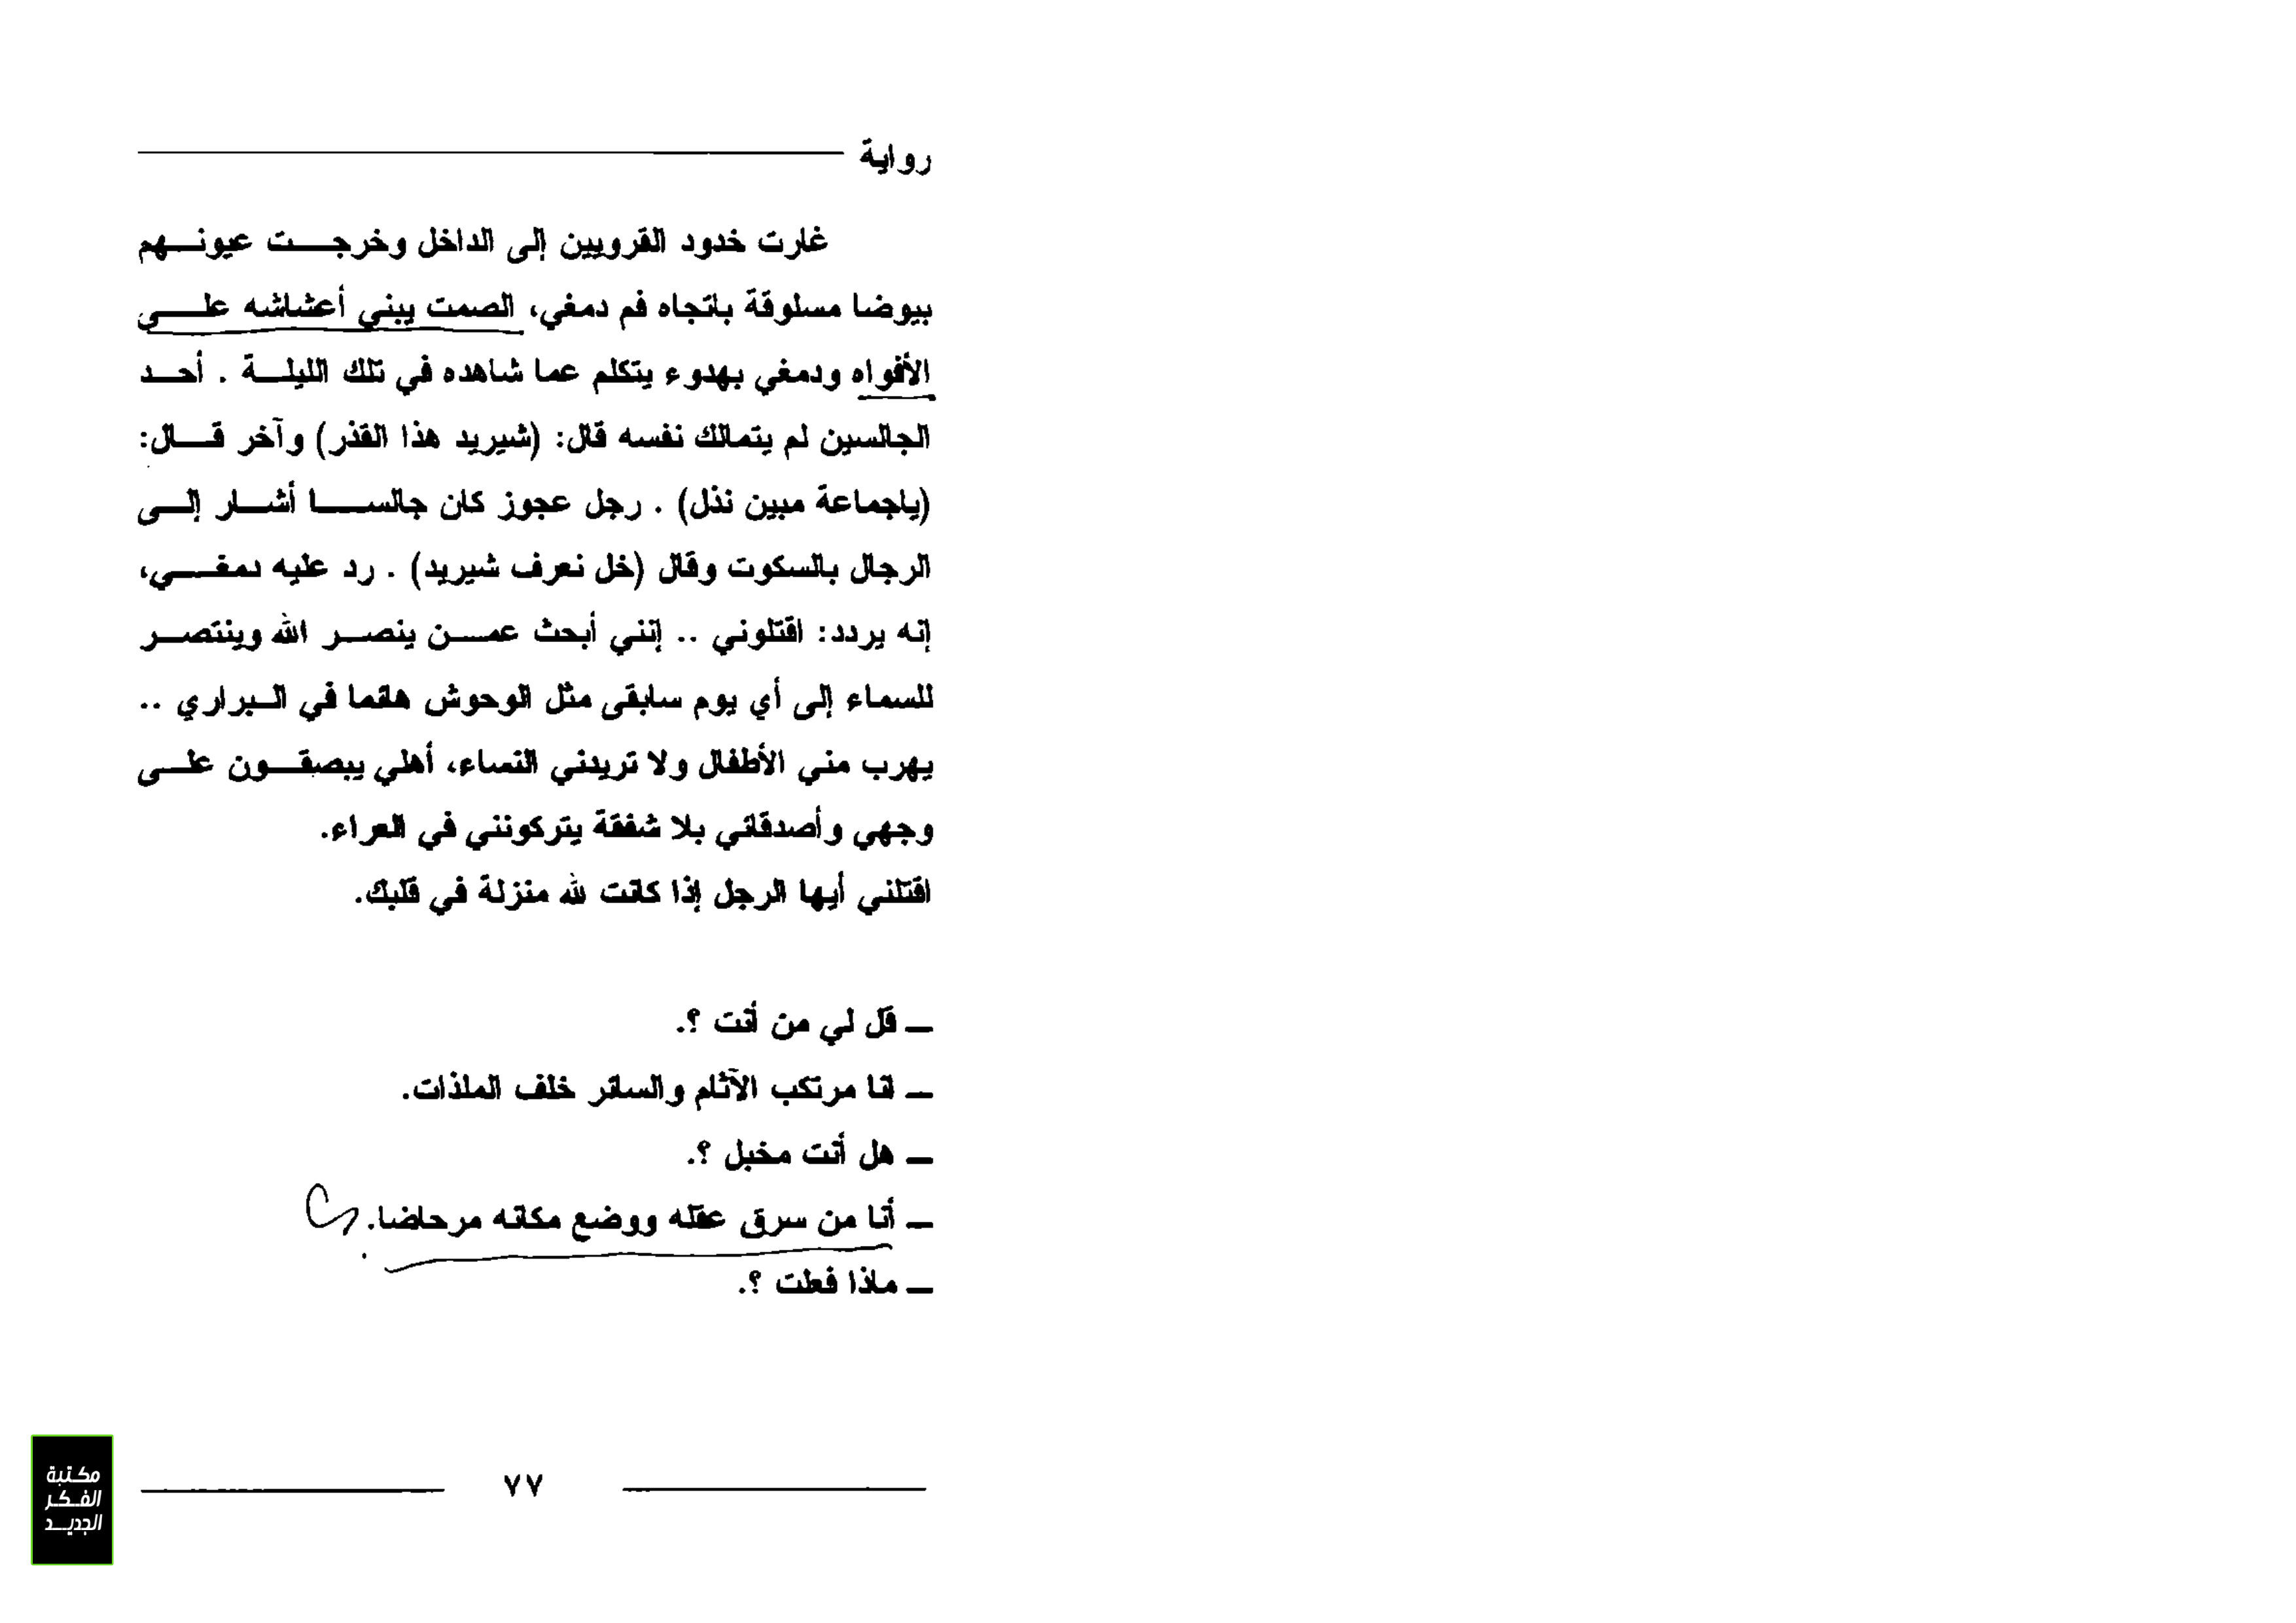 رواية
غارت خدود القرويين إلى الداخل وخرجت عيونهم
بيوضا مسلوقة باتجاه فم دمغي، الصمت يبني أعشاشه على
الأفواه ودمغي بهدوء يتكلم عما شاهده في تلك الليلة . أحد
الجالسين لم يتمالك نفسه قال: (شيريد هذا القذر) وآخر قال:
(ياجماعة مبين نذل) . رجل عجوز كان جالسا أشار إلى
الرجال بالسكوت وقال (خل نعرف شيريد) . رد عليه دمغي،
إنه يردد: اقتلوني .. إنني أبحث عمن ينصر الله وينتصر
للسماء إلى أي يوم سابقى مثل الوحوش هائما في البراري ..
يهرب مني الأطفال ولا تريدني النساء، أهلي يبصقون على
وجهي وأصدقائي بلا شفقة يتركونني في العراء.
اقتلني أيها الرجل إذا كانت لله منزلة في قلبك.
ـ قل لي من أنت ؟.
ـ انا مرتكب الآثام والسائر خلف الملذات.
ـ هل أنت مخبل ؟.
ـ أنا من سرق عقله ووضع مكانه مرحاضا.
ـ ماذا فعلت ؟.
٧٧
مكتبة
الفكر
الجديد